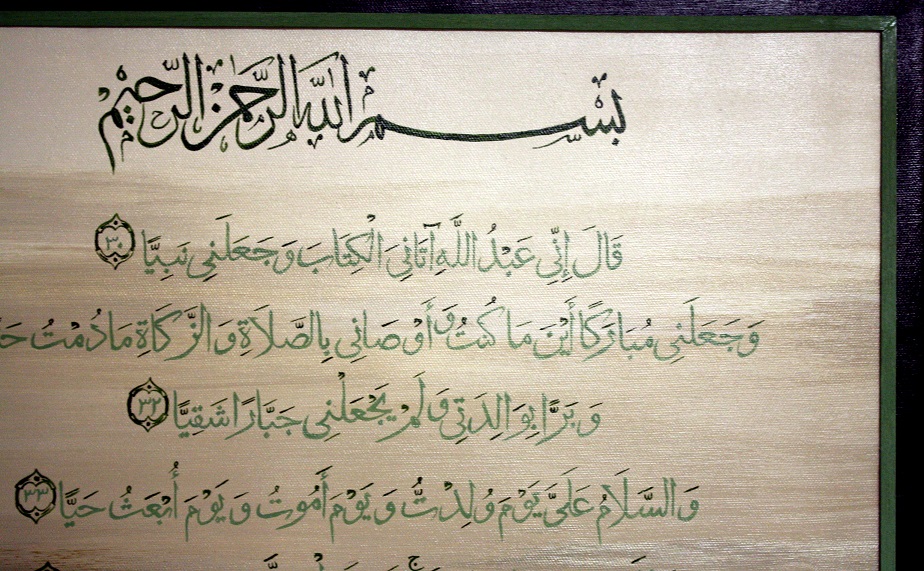 بِسْمِ اللَّهِ الرَّحْمَٰنِ الرَّحِيمِ
قَالَ إِنِّي عَبْدُ اللَّهِ آتَانِيَ الْكِتَابَ وَجَعَلَنِي نَبِيًّا ٣٠
وَجَعَلَنِي مُبَارَكًا أَيْنَ مَا كُنتُ وَأَوْصَانِي بِالصَّلَاةِ وَالزَّكَاةِ مَا دُمْتُ
وَبَرًّا بِوَالِدَتِي وَلَمْ يَجْعَلْنِي جَبَّارًا شَقِيًّا ٣٢
وَالسَّلَامُ عَلَيَّ يَوْمَ وُلِدْتُّ وَيَوْمَ أَمُوتُ وَيَوْمَ أُبْعَثُ حَيًّا ٣٣